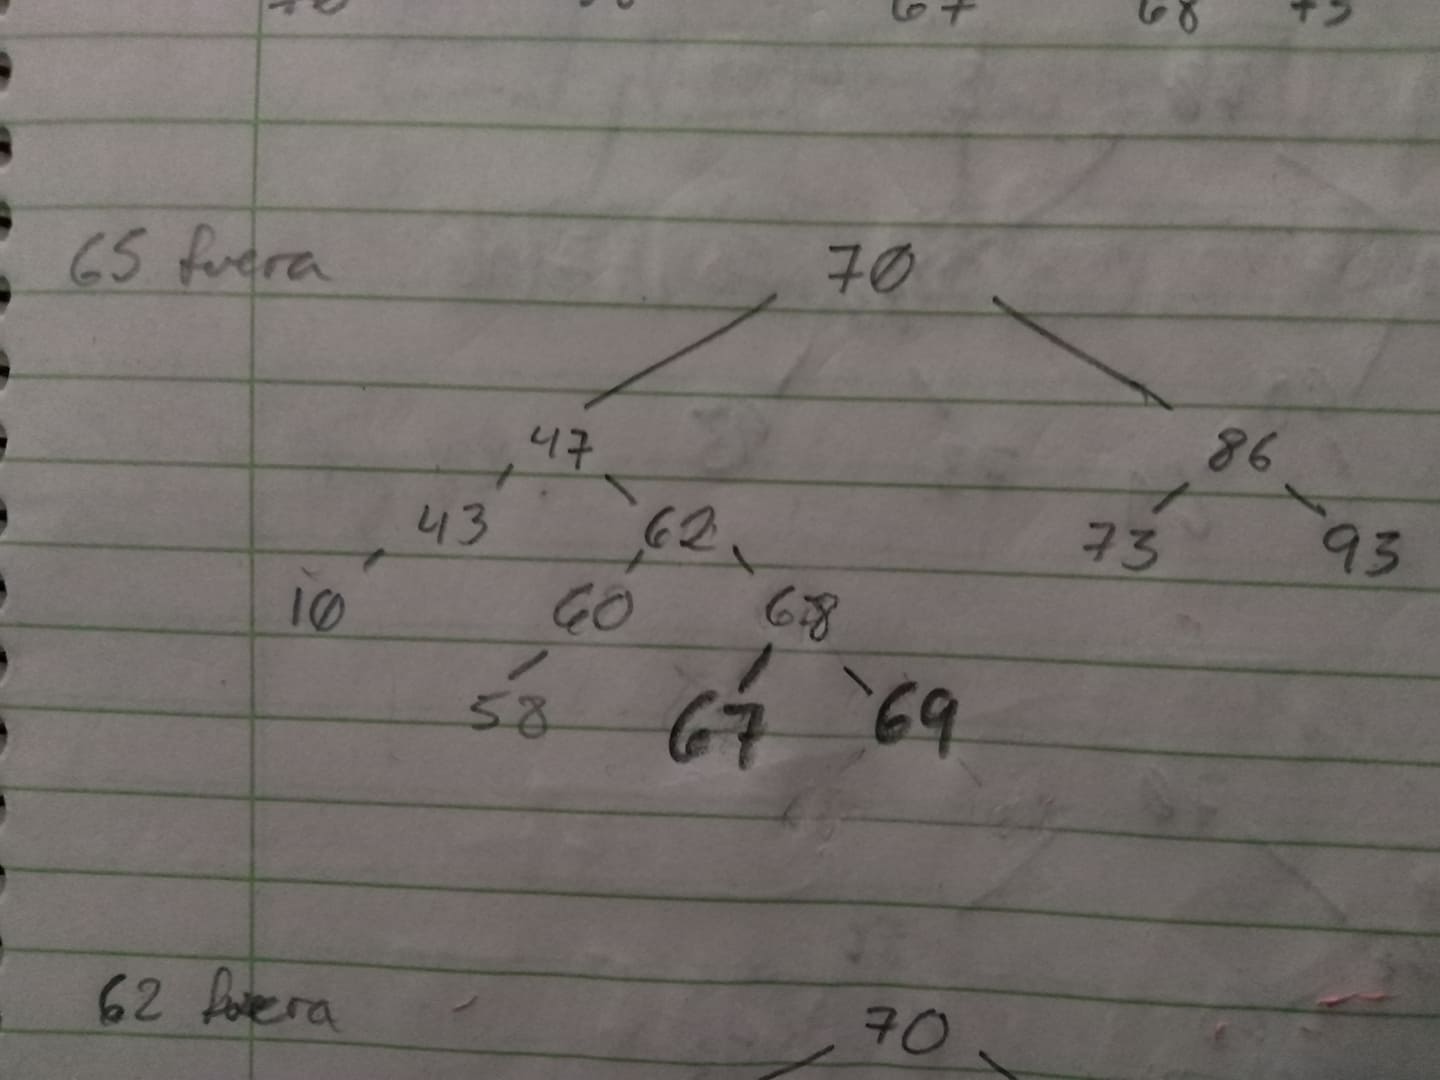 67 68 73
65 fuera 70
47 86
43 62 73 93
10 60 68
58 67 69
62 fuera 70